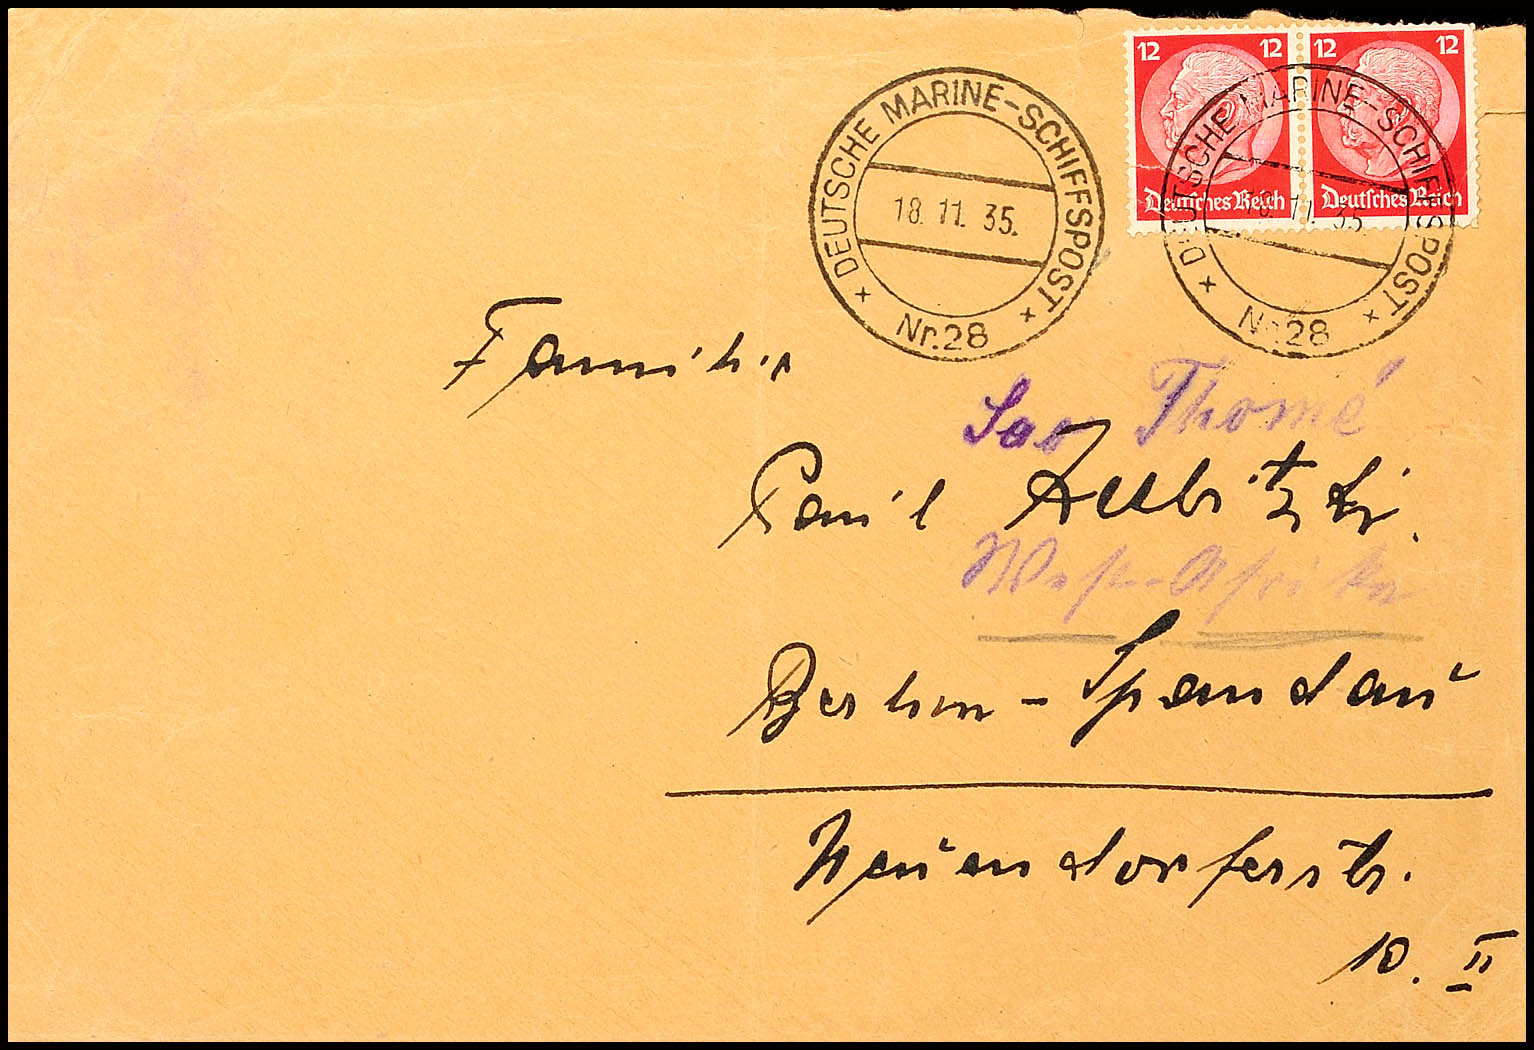 12 12 12 12
Deutsches Reich Deutsches Reich
DEUTSCHE MARINE-SCHIFFSPOST
18. 11. 35.
Nr. 28
DEUTSCHE MARINE-SCHIFFSPOST
18. 11. 35.
Nr. 28
Familie
Sao Thomé
Paul
West-Afrika
Berlin-Spandau
Neuendorferstr.
10. II